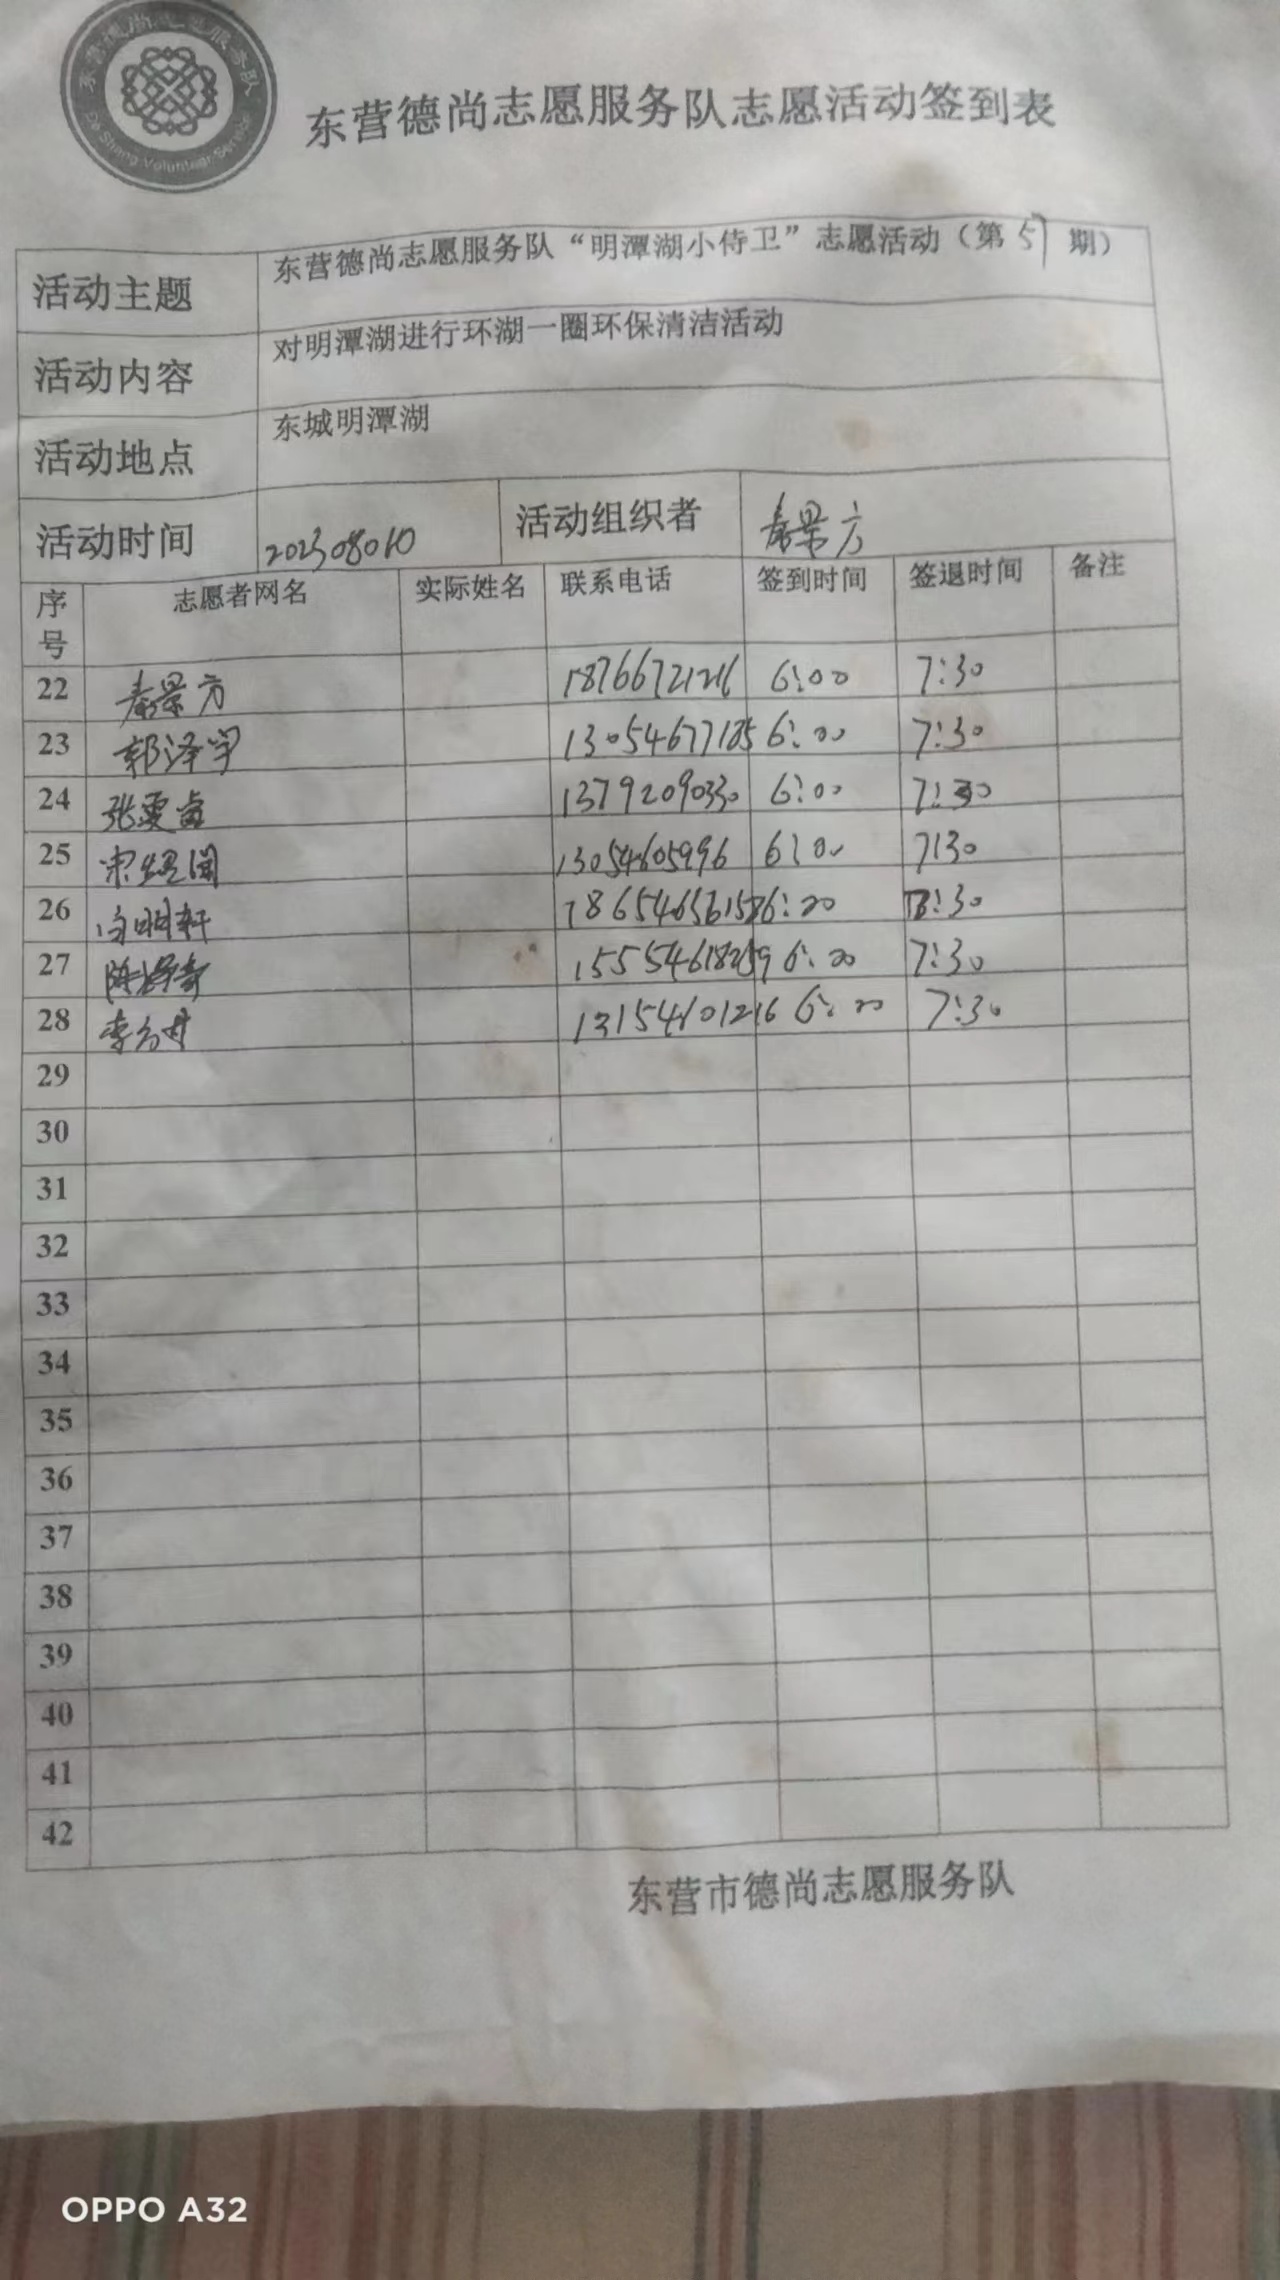 东营德尚志愿服务队
De Shang Volunteer Service
东营德尚志愿服务队志愿活动签到表
活动主题 东营德尚志愿服务队“明潭湖小侍卫”志愿活动（第57期）
活动内容 对明潭湖进行环湖一圈环保清洁活动
活动地点 东城明潭湖
活动时间 202308010 活动组织者 秦景方
序号 志愿者网名 实际姓名 联系电话 签到时间 签退时间 备注
22 秦景方 18766721216 6:00 7:30
23 郭泽宇 13054677185 6:00 7:30
24 张雯 13792090330 6:00 7:30
25 13054605996 6:00 7:30
26 明轩 6:00 :30
27 陈 15554618259 6:00 7:30
28 李 6:00 7:30
29
30
31
32
33
34
35
36
37
38
39
40
41
42
东营市德尚志愿服务队
OPPO A32